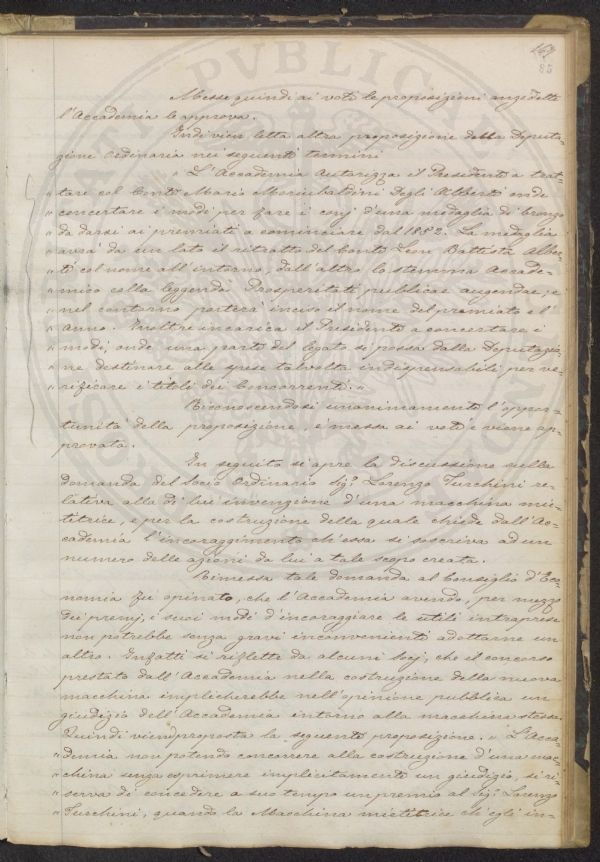 163
85
Messe quindi ai voti le proposizioni anzidette
l'Accademia le approva.
Indi vien letta altra proposizione della Deputa=
zione Ordinaria nei seguenti termini
" L'Accademia Autorizza il Presidente a trat=
" tare col Conte Mario Moriubaldini Degli Alberti onde
" concertare i modi per fare i conj d'una medaglia di bronzo
" da darsi ai premiati a cominciare dal 1882. La medaglia
" avrà da un lato il ritratto del Conte Leon Battista Alber=
" ti col nome all'intorno, dall'altro lo stemma Accade=
" mico colla leggenda Prosperitati publicae augendae, e
" nel contorno porterà inciso il nome del premiato e l'
" Anno. Inoltre incarica il Presidente a concertare i
" modi, onde una parte del legato si possa dalla Deputazio=
" ne destinare alle spese talvolta indispensabili per ve=
" rificare i titoli dei Concorrenti. "
Riconoscendosi unanimamente l'oppor=
tunità della proposizione, e messa ai voti e viene ap=
provata.
In seguito si apre la discussione sulla
domanda del Socio Ordinario Sig.r Lorenzo Turchini re=
lativa alla di lui invenzione d'una macchina mie=
titrice, e per la costruzione della quale chiede dall'Ac=
cademia l'incoraggimento ch'essa si soscriva ad un
numero delle azioni da lui a tale scopo create.
Rimessa tale domanda al Consiglio d'Eco=
nomia fu opinato, che l'Accademia avendo, per mezzo
dei premj, i suoi modi d'incoraggiare le utili intraprese
non potrebbe senza gravi inconvenienti adottarne un
altro. Infatti si riflette da alcuni Socj, che il concorso
prestato dall'Accademia nella costruzione della nuova
macchina implicherebbe nell'opinione pubblica un
giudizio dell'Accademia intorno alla macchina stessa.
Quindi vien proposta la seguente proposizione. " L'Acca=
" demia non potendo concorrere alla costruzione d'una mac=
" china senza esprimere implicitamente un giudizio, si ri=
" serva di concedere a suo tempo un premio al Sig.r Lorenzo
" Turchini, quando la Macchina mietitrice ch'egli in=